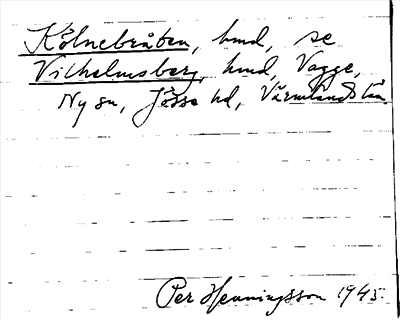 Kölnebråten, hmd, se
Vilhelmsberg, hmd, Vagge,
Ny sn, Jösse hd, Värmlands län.
Per Henningsson 1945.